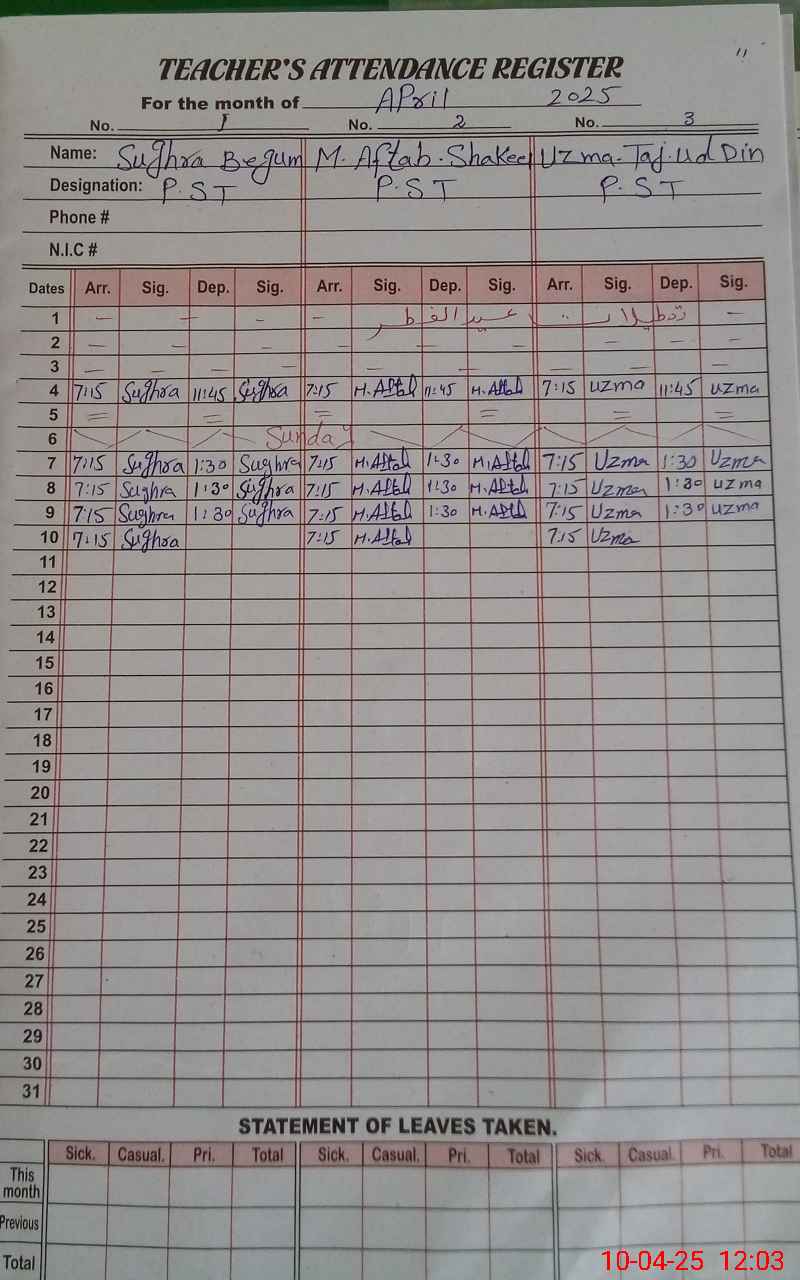 "
TEACHER'S ATTENDANCE REGISTER
For the month of April 2025
No. 1 No. 2 No. 3
Name: Sughra Begum M. Aftab. Shakeel Uzma. Taj. Ud Din
Designation: P.S T P.S T P.S T
Phone #
N.I.C #
Dates Arr. Sig. Dep. Sig. Arr. Sig. Dep. Sig. Arr. Sig. Dep. Sig.
1 – – – – تعطیلات عید الفطر –
2 – – – – – – – –
3 – – – – – – – –
4 7:15 Sughra 11:45 Sughra 7:15 M.Aftab 11:45 M.Aftab 7:15 uzma 11:45 uzma
5 = = = = = =
6 Sunday
7 7:15 Sughra 1:30 Sughra 7:15 M.Aftab 1:30 M.Aftab 7:15 Uzma 1:30 Uzma
8 7:15 Sughra 1:30 Sughra 7:15 M.Aftab 1:30 M.Aftab 7:15 Uzma 1:30 uzma
9 7:15 Sughra 1:30 Sughra 7:15 M.Aftab 1:30 M.Aftab 7:15 Uzma 1:30 uzma
10 7:15 Sughra 7:15 M.Aftab 7:15 Uzma
11
12
13
14
15
16
17
18
19
20
21
22
23
24
25
26
27
28
29
30
31
STATEMENT OF LEAVES TAKEN.
Sick. Casual. Pri. Total Sick. Casual. Pri. Total Sick. Casual. Pri. Total
This month
Previous
Total
10-04-25 12:03